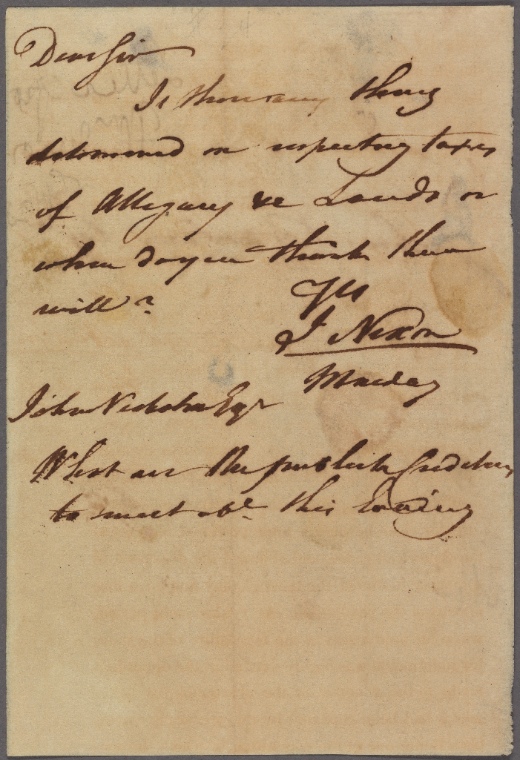 Dear Sir
Is there any thing
determined on respecting taxes
of Allegany &c Lands or
when do you think there
will?
Yrs
J Nixon
Monday
John Nicholson Esqr
What are the publick Creditors
to meet abt. this Evening